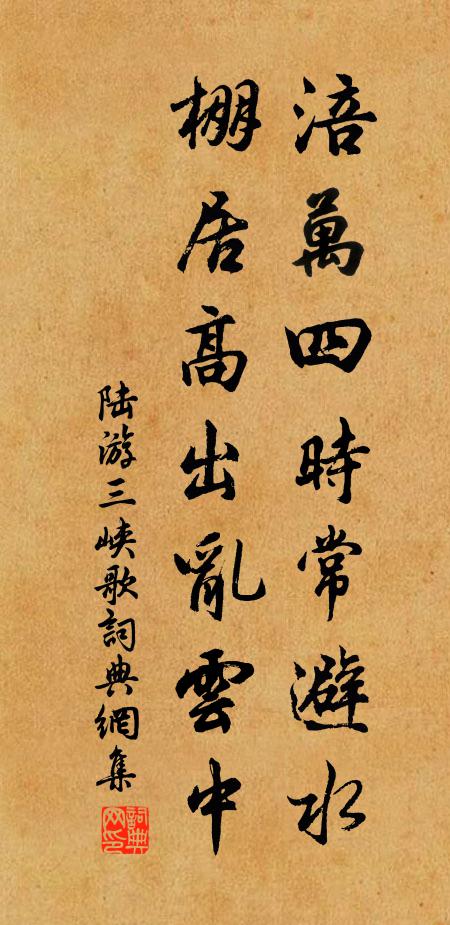 涪萬四時常避水
棚居高出亂雲中
陆游三峡歌詞典網集
詞典网印